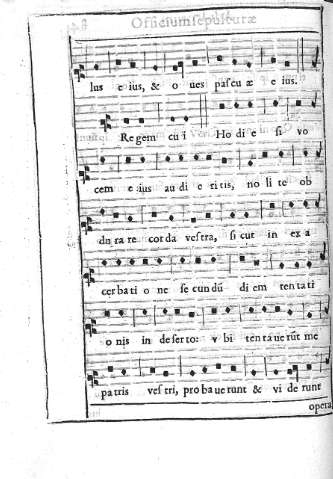 Officium sepulturæ
lus e ius, & o ues pascu æ e ius.
Regem cu i Ho di e si vo
cem e ius au di e ri tis, no li te ob
du ra re cor da vestra, si cut in ex a
cer ba ti o ne se cun dũ di em ten ta ti
o nis in de ser to: v bi ten ta ue rũt me
pa tris ves tri, pro ba ue runt & vi de runt
opera